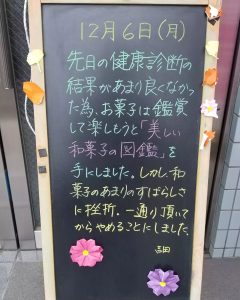 12月6日(月)
先日の健康診断の
結果があまり良くなかっ
た為、お菓子は鑑賞
して楽しもうと「美しい
和菓子の図鑑」を
手にしました。しかし、和
菓子のあまりのすばらしさ
に挫折。一通り頂いて
からやめることにしました。
吉田